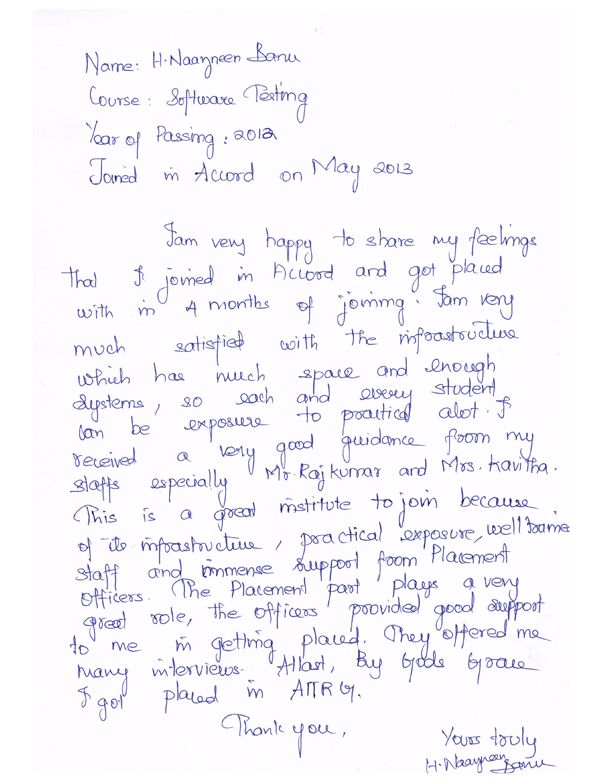 Name: H. Naazneen Banu
Course: Software Testing
Year of Passing: 2012
Joined in Accord on May 2013
I am very happy to share my feelings
that I joined in Accord and got placed
with in 4 months of joining. I am very
much satisfied with the infrastructure
which has much space and enough
systems, so each and every student
can be exposure to practical alot. I
received a very good guidance from my
staffs especially Mr. Rajkumar and Mrs. Kavitha.
This is a great institute to join because
of its infrastructure, practical exposure, well
staff and immense support from Placement
officers. The Placement part plays a very
great role, the officers provided good support
to me in getting placed. They offered me
many interviews. Atlast, By Gods Grace
I got placed in
Thank you,
Yours truly
H. Naazneen Banu